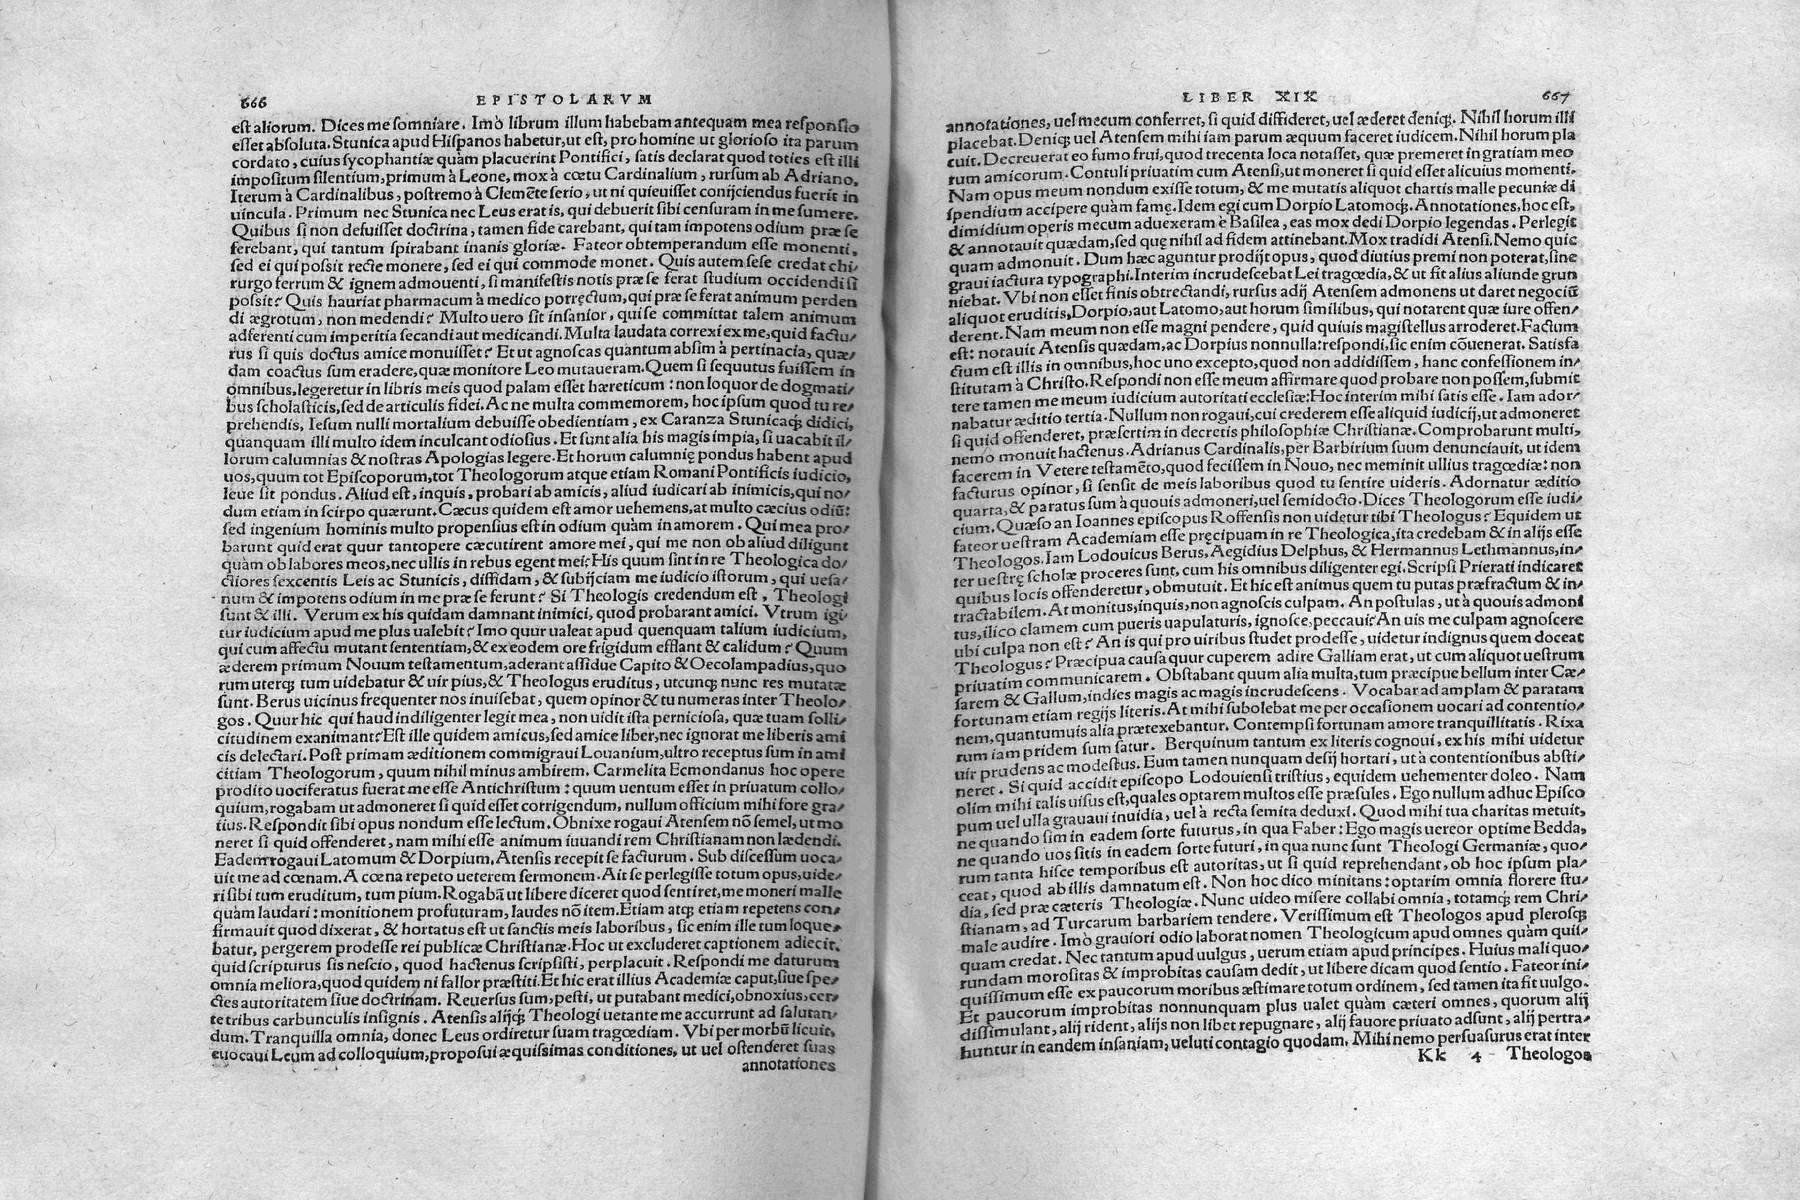 666 EPISTOLARVM
est aliorum. Dices me somniare. Imò librum illum habebam antequam mea responsio
esset absoluta. Stunica apud Hispanos habetur, ut est, pro homine ut glorioso ita parum
cordato, cuius sycophantiæ quàm placuerint Pontifici, satis declarat quod toties est illi
impositum silentium, primum à Leone, mox à cœtu Cardinalium, rursum ab Adriano.
Iterum à Cardinalibus, postremo à Clemẽte serio, ut ni quieuisset conijciendus fuerit in
uincula. Primum nec Stunica nec Leus erat is, qui debuerit sibi censuram in me sumere.
Quibus si non defuisset doctrina, tamen fide carebant, qui tam impotens odium præ se
ferebant, qui tantum spirabant inanis gloriæ. Fateor obtemperandum esse monenti,
sed ei qui possit recte monere, sed ei qui commode monet. Quis autem sese credat chi/
rurgo ferrum & ignem admouenti, si manifestis notis præ se ferat studium occidendi si
possit? Quis hauriat pharmacum à medico porrectum, qui præ se ferat animum perden
di ægrotum, non medendi? Multo uero sit insanior, qui se committat talem animum
adferenti cum imperitia secandi aut medicandi. Multa laudata correxi ex me, quid factu/
rus si quis doctus amice monuisset? Et ut agnoscas quantum absim à pertinacia, quæ/
dam coactus sum eradere, quæ monitore Leo mutaueram. Quem si sequutus fuissem in
omnibus, legeretur in libris meis quod palam esset hæreticum: non loquor de dogmati/
bus scholasticis, sed de articulis fidei. Ac ne multa commemorem, hoc ipsum quod tu re/
prehendis, Iesum nulli mortalium debuisse obedientiam, ex Caranza Stunicaq; didici,
quanquam illi multo idem inculcant odiosius. Et sunt alia his magis impia, si uacabit il/
lorum calumnias & nostras Apologias legere. Et horum calumnię pondus habent apud
uos, quum tot Episcoporum, tot Theologorum atque etiam Romani Pontificis iudicio,
leue sit pondus. Aliud est, inquis, probari ab amicis, aliud iudicari ab inimicis, qui no/
dum etiam in scirpo quærunt. Cæcus quidem est amor uehemens, at multo cæcius odiũ:
sed ingenium hominis multo propensius est in odium quàm in amorem. Qui mea pro/
barunt quid erat quur tantopere cæcutirent amore mei, qui me non ob aliud diligunt
quàm ob labores meos, nec ullis in rebus egent mei? His quum sint in re Theologica do/
ctiores sexcentis Leis ac Stunicis, diffidam, & subijciam me iudicio istorum, qui uesa/
num & impotens odium in me præ se ferunt? Si Theologis credendum est, Theologi
sunt & illi. Verum ex his quidam damnant inimici, quod probarant amici. Vtrum igi/
tur iudicium apud me plus ualebit? Imo quur ualeat apud quenquam talium iudicium,
qui cum affectu mutant sententiam, & ex eodem ore frigidum efflant & calidum? Quum
æderem primum Nouum testamentum, aderant assidue Capito & Oecolampadius, quo
rum uterq; tum uidebatur & uir pius, & Theologus eruditus, utcunq; nunc res mutatæ
sunt. Berus uicinus frequenter nos inuisebat, quem opinor & tu numeras inter Theolo/
gos. Quur hic qui haud indiligenter legit mea, non uidit ista perniciosa, quæ tuam solli/
citudinem exanimant? Est ille quidem amicus, sed amice liber, nec ignorat me liberis ami
cis delectari. Post primam æditionem commigraui Louanium, ultro receptus sum in ami
citiam Theologorum, quum nihil minus ambirem. Carmelita Ecmondanus hoc opere
prodito uociferatus fuerat me esse Antichristum: quum uentum esset in priuatum collo/
quium, rogabam ut admoneret si quid esset corrigendum, nullum officium mihi fore gra/
tius. Respondit sibi opus nondum esse lectum. Obnixe rogaui Atensem nõ semel, ut mo
neret si quid offenderet, nam mihi esse animum iuuandi rem Christianam non lædendi.
Eadem rogaui Latomum & Dorpium. Atensis recepit se facturum. Sub discessum uoca/
uit me ad cœnam. A cœna repeto ueterem sermonem. Ait se perlegisse totum opus, uide/
ri sibi tum eruditum, tum pium. Rogabã ut libere diceret quod sentiret, me moneri malle
quàm laudari: monitionem profuturam, laudes nõ item. Etiam atq; etiam repetens con/
firmauit quod dixerat, & hortatus est ut sanctis meis laboribus, sic enim ille tum loque/
batur, pergerem prodesse rei publicæ Christianæ. Hoc ut excluderet captionem adiecit.
quid scripturus sis nescio, quod hactenus scripsisti, perplacuit. Respondi me daturum
omnia meliora, quod quidem ni fallor præstiti. Et hic erat illius Academiæ caput, siue spe/
ctes autoritatem siue doctrinam. Reuersus sum, pesti, ut putabant medici, obnoxius, cer/
te tribus carbunculis insignis. Atensis alijq; Theologi uetante me accurrunt ad salutan/
dum. Tranquilla omnia, donec Leus ordiretur suam tragœdiam. Vbi per morbũ licuit,
euocaui Leum ad colloquium, proposui æquissimas conditiones, ut uel ostenderet suas
annotationes
LIBER XIX 667
annotationes, uel mecum conferret, si quid diffideret, uel æderet deniq;. Nihil horum illi
placebat. Deniq; uel Atensem mihi iam parum æquum faceret iudicem. Nihil horum pla
cuit. Decreuerat eo fumo frui, quod trecenta loca notasset, quæ premeret in gratiam meo
rum amicorum. Contuli priuatim cum Atensi, ut moneret si quid esset alicuius momenti.
Nam opus meum nondum exisse totum, & me mutatis aliquot chartis malle pecuniæ di
spendium accipere quàm famę. Idem egi cum Dorpio Latomoq;. Annotationes, hoc est,
dimidium operis mecum aduexeram è Basilea, eas mox dedi Dorpio legendas. Perlegit
& annotauit quædam, sed quę nihil ad fidem attinebant. Mox tradidi Atensi. Nemo quic
quam admonuit. Dum hæc aguntur prodijt opus, quod diutius premi non poterat, sine
graui iactura typographi. Interim incrudescebat Lei tragœdia, & ut fit alius aliunde grun
niebat. Vbi non esset finis obtrectandi, rursus adij Atensem admonens ut daret negociũ
aliquot eruditis, Dorpio, aut Latomo, aut horum similibus, qui notarent quæ iure offen/
derent. Nam meum non esse magni pendere, quid quiuis magistellus arroderet. Factum
est: notauit Atensis quædam, ac Dorpius nonnulla: respondi, sic enim cõuenerat. Satisfa
ctum est illis in omnibus, hoc uno excepto, quod non addidissem, hanc confessionem in/
stitutam à Christo. Respondi non esse meum affirmare quod probare non possem, submit
tere tamen me meum iudicium autoritati ecclesiæ: Hoc interim mihi satis esse. Iam ador/
nabatur æditio tertia. Nullum non rogaui, cui crederem esse aliquid iudicij, ut admoneret
si quid offenderet, præsertim in decretis philosophiæ Christianæ. Comprobarunt multi,
nemo monuit hactenus. Adrianus Cardinalis, per Barbirium suum denunciauit, ut idem
facerem in Vetere testamẽto, quod fecissem in Nouo, nec meminit ullius tragœdiæ: non
facturus opinor, si sensit de meis laboribus quod tu sentire uideris. Adornatur æditio
quarta, & paratus sum à quouis admoneri, uel semidocto. Dices Theologorum esse iudi/
cium. Quæso an Ioannes episcopus Roffensis non uidetur tibi Theologus? Equidem ut
fateor uestram Academiam esse pręcipuam in re Theologica, ita credebam & in alijs esse
Theologos. Iam Lodouicus Berus, Aegidius Delphus, & Hermannus Lethmannus, in/
ter uestrę scholæ proceres sunt, cum his omnibus diligenter egi. Scripsi Prierati indicaret
quibus locis offenderetur, obmutuit. Et hic est animus quem tu putas præfractum & in/
tractabilem. At monitus, inquis, non agnoscis culpam. An postulas, ut à quouis admoni
tus, ilico clamem cum pueris uapulaturis, ignosce, peccaui? An uis me culpam agnoscere
ubi culpa non est? An is qui pro uiribus studet prodesse, uidetur indignus quem doceat
Theologus? Præcipua causa quur cuperem adire Galliam erat, ut cum aliquot uestrum
priuatim communicarem. Obstabant quum alia multa, tum præcipue bellum inter Cæ/
sarem & Gallum, indies magis ac magis incrudescens. Vocabar ad amplam & paratam
fortunam etiam regijs literis. At mihi subolebat me per occasionem uocari ad contentio/
nem, quantumuis alia prætexebantur. Contempsi fortunam amore tranquillitatis. Rixa
rum iam pridem sum satur. Berquinum tantum ex literis cognoui, ex his mihi uidetur
uir prudens ac modestus. Eum tamen nunquam desij hortari, ut à contentionibus absti/
neret. Si quid accidit episcopo Lodouiensi tristius, equidem uehementer doleo. Nam
olim mihi talis uisus est, quales optarem multos esse præsules. Ego nullum adhuc Episco
pum uel ulla grauaui inuidia, uel à recta semita deduxi. Quod mihi tua charitas metuit,
ne quando sim in eadem sorte futurus, in qua Faber: Ego magis uereor optime Bedda,
ne quando uos sitis in eadem sorte futuri, in qua nunc sunt Theologi Germaniæ, quo/
rum tanta hisce temporibus est autoritas, ut si quid reprehendant, ob hoc ipsum pla/
ceat, quod ab illis damnatum est. Non hoc dico minitans: optarim omnia florere stu/
dia, sed præ cæteris Theologiæ. Nunc uideo misere collabi omnia, totamq; rem Chri/
stianam, ad Turcarum barbariem tendere. Verissimum est Theologos apud plerosq;
male audire. Imò grauiori odio laborat nomen Theologicum apud omnes quàm quis/
quam credat. Nec tantum apud uulgus, uerum etiam apud principes. Huius mali quo/
rundam morositas & improbitas causam dedit, ut libere dicam quod sentio. Fateor ini/
quissimum esse ex paucorum moribus æstimare totum ordinem, sed tamen ita fit uulgo.
Et paucorum improbitas nonnunquam plus ualet quàm cæteri omnes, quorum alij
dissimulant, alij rident, alijs non libet repugnare, alij fauore priuato adsunt, alij pertra/
huntur in eandem insaniam, ueluti contagio quodam. Mihi nemo persuasurus erat inter
Kk 4 Theologos